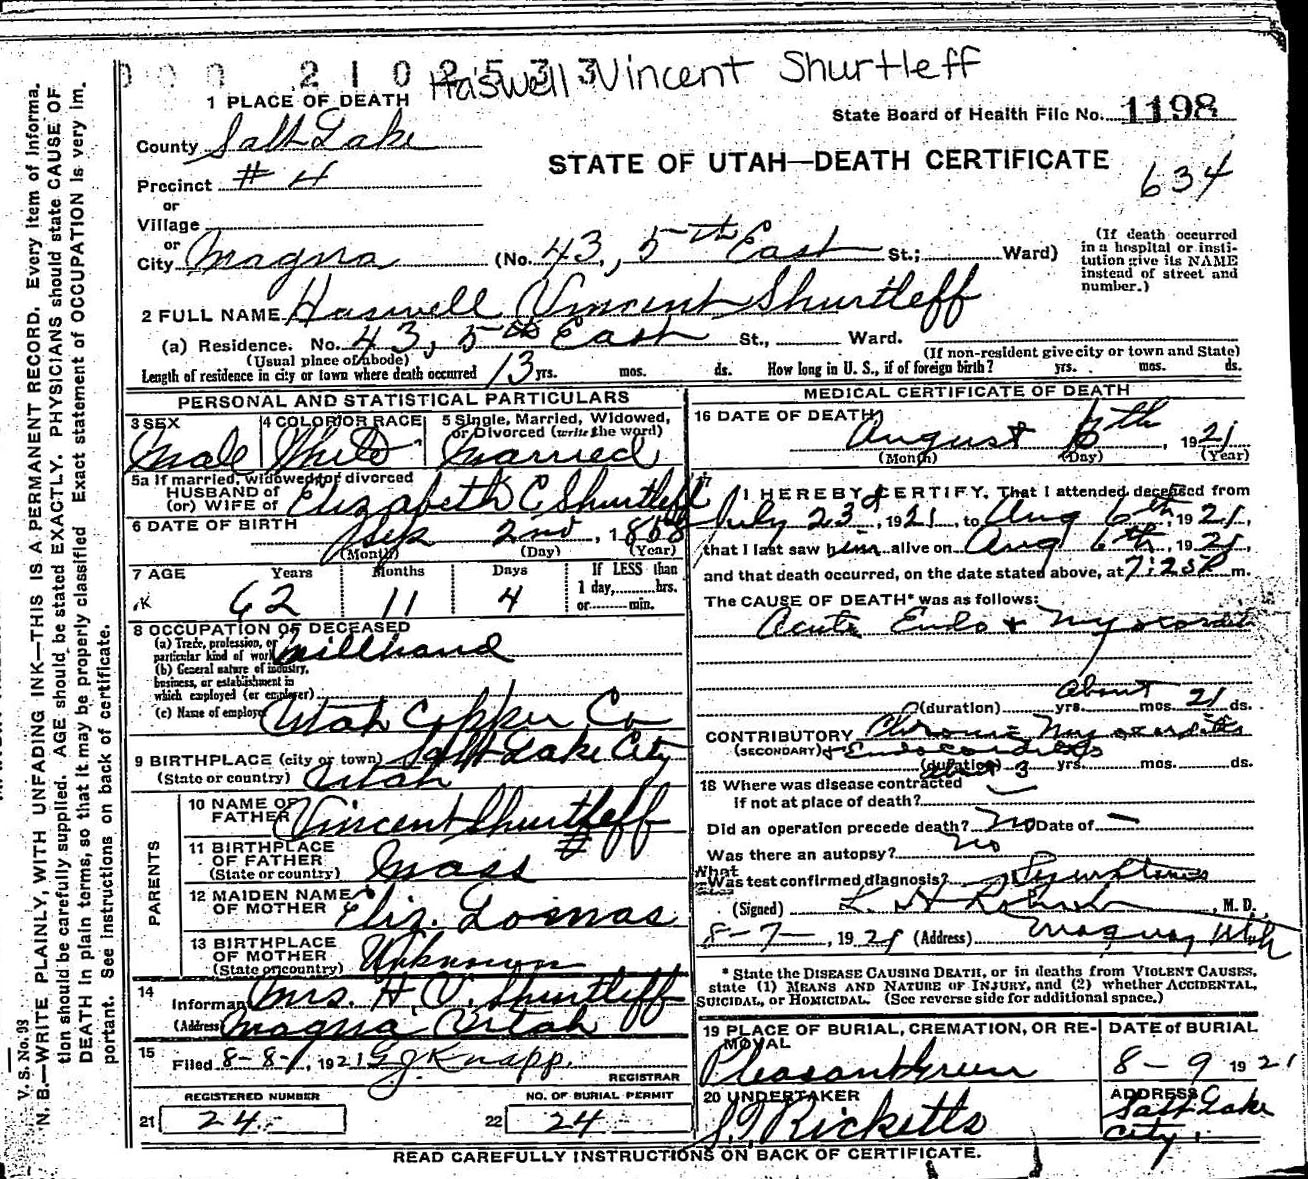 21025 33
Haswell Vincent Shurtleff
1 PLACE OF DEATH
State Board of Health File No. 1198
County Salt Lake
STATE OF UTAH—DEATH CERTIFICATE
634
Precinct # 4
or
Village
or
City Magna (No. 43, 5th East St.; Ward)
(If death occurred in a hospital or insti-
tution give its NAME instead of street and number.)
2 FULL NAME Haswell Vincent Shurtleff
(a) Residence. No. 43, 5th East St., Ward.
(Usual place of abode) (If non-resident give city or town and State)
Length of residence in city or town where death occurred 13 yrs. mos. ds. How long in U. S., if of foreign birth? yrs. mos. ds.
PERSONAL AND STATISTICAL PARTICULARS
3 SEX Male
4 COLOR OR RACE White
5 Single, Married, Widowed, or Divorced (write the word) Married
5a If married, widowed or divorced
HUSBAND of
(or) WIFE of Elizabeth C Shurtleff
6 DATE OF BIRTH Sep 2nd, 1858
(Month) (Day) (Year)
7 AGE Years Months Days If LESS than
62 11 4 1 day, hrs.
or min.
8 OCCUPATION OF DECEASED
(a) Trade, profession, or
particular kind of work Millhand
(b) General nature of industry,
business, or establishment in
which employed (or employer)
(c) Name of employer Utah Copper Co
9 BIRTHPLACE (city or town) Salt Lake City
(State or country) Utah
PARENTS
10 NAME OF
FATHER Vincent Shurtleff
11 BIRTHPLACE
OF FATHER
(State or country) Mass
12 MAIDEN NAME
OF MOTHER Eliz. Lomas
13 BIRTHPLACE
OF MOTHER
(State or country) Unknown
14
Informant Mrs. H. V. Shurtleff
(Address) Magna Utah
15
Filed 8-8-, 1921 G J Knapp.
REGISTRAR
REGISTERED NUMBER NO. OF BURIAL PERMIT
21 24 22 24
MEDICAL CERTIFICATE OF DEATH
16 DATE OF DEATH August 6th, 1921
(Month) (Day) (Year)
17
I HEREBY CERTIFY, That I attended deceased from
July 23d, 1921, to Aug 6th, 1921,
that I last saw him alive on Aug 6th, 1921,
and that death occurred, on the date stated above, at 7:25P m.
The CAUSE OF DEATH* was as follows:
Acute Endo & Myocardit
about
(duration) yrs. mos. 21 ds.
CONTRIBUTORY Chronic Myocarditis
(SECONDARY) & Endocarditis
(duration) about 3 yrs. mos. ds.
18 Where was disease contracted
if not at place of death?
Did an operation precede death? No Date of —
Was there an autopsy? No
What test confirmed diagnosis?
(Signed) L. H. , M. D.
8-7-, 1921 (Address) Magna, Utah
* State the DISEASE CAUSING DEATH, or in deaths from VIOLENT CAUSES,
state (1) MEANS AND NATURE OF INJURY, and (2) whether ACCIDENTAL,
SUICIDAL, or HOMICIDAL. (See reverse side for additional space.)
19 PLACE OF BURIAL, CREMATION, OR RE-
MOVAL
Pleasant Green
DATE of BURIAL
8-9 1921
20 UNDERTAKER
Ricketts
ADDRESS
Salt Lake
City.
READ CAREFULLY INSTRUCTIONS ON BACK OF CERTIFICATE.
V. S. No. 93
N. B.—WRITE PLAINLY, WITH UNFADING INK—THIS IS A PERMANENT RECORD. Every item of informa-
tion should be carefully supplied. AGE should be stated EXACTLY. PHYSICIANS should state CAUSE OF
DEATH in plain terms, so that it may be properly classified. Exact statement of OCCUPATION is very im-
portant. See instructions on back of certificate.